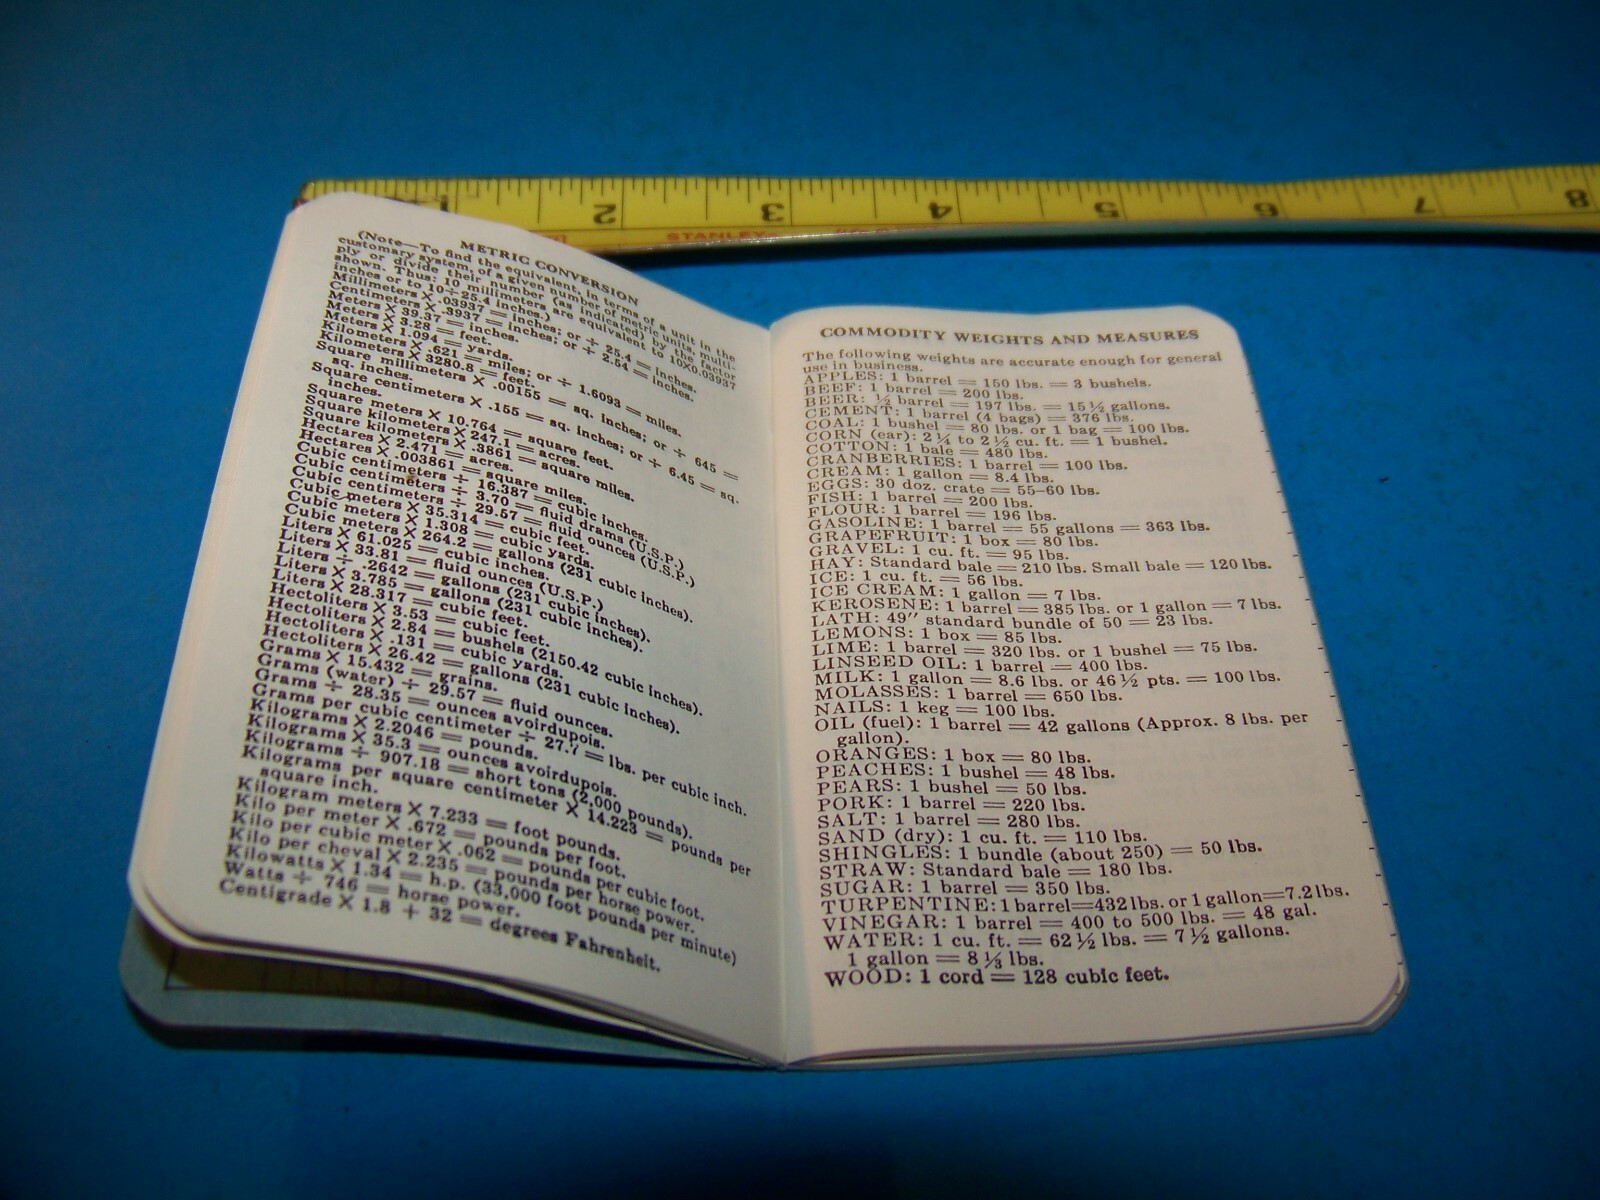 1 2 3 4 5 6 7 8
STANLEY
METRIC CONVERSION
(Note—To find the equivalent, in terms of a unit in the
customary system, of a given number of metric units, multi-
ply or divide their number (as indicated) by the factor
shown. Thus: 10 millimeters are equivalent to 10X0.03937
inches or to 10÷25.4 inches.)
Millimeters X .03937 = inches; or ÷ 25.4 = inches.
Centimeters X .3937 = inches; or ÷ 2.54 = inches.
Meters X 39.37 = inches.
Meters X 3.28 = feet.
Meters X 1.094 = yards.
Kilometers X .621 = miles; or ÷ 1.6093 = miles.
Kilometers X 3280.8 = feet.
Square millimeters X .00155 = sq. inches; or ÷ 645 =
sq. inches.
Square centimeters X .155 = sq. inches; or ÷ 6.45 = sq.
inches.
Square meters X 10.764 = square feet.
Square kilometers X 247.1 = acres.
Square kilometers X .3861 = square miles.
Hectares X 2.471 = acres.
Hectares X .003861 = square miles.
Cubic centimeters ÷ 16.387 = cubic inches.
Cubic centimeters ÷ 3.70 = fluid drams (U.S.P.)
Cubic centimeters ÷ 29.57 = fluid ounces (U.S.P.)
Cubic meters X 35.314 = cubic feet.
Cubic meters X 1.308 = cubic yards.
Cubic meters X 264.2 = gallons (231 cubic inches).
Liters X 61.025 = cubic inches.
Liters X 33.81 = fluid ounces (U.S.P.)
Liters ÷ .2642 = gallons (231 cubic inches).
Liters X 3.785 = gallons (231 cubic inches).
Liters X 28.317 = cubic feet.
Hectoliters X 3.53 = cubic feet.
Hectoliters X 2.84 = bushels (2150.42 cubic inches).
Hectoliters X .131 = cubic yards.
Hectoliters X 26.42 = gallons (231 cubic inches).
Grams X 15.432 = grains.
Grams (water) ÷ 29.57 = fluid ounces.
Grams ÷ 28.35 = ounces avoirdupois.
Grams per cubic centimeter ÷ 27.7 = lbs. per cubic inch.
Kilograms X 2.2046 = pounds.
Kilograms X 35.3 = ounces avoirdupois.
Kilograms ÷ 907.18 = short tons (2,000 pounds).
Kilograms per square centimeter X 14.223 = pounds per
square inch.
Kilogram meters X 7.233 = foot pounds.
Kilo per meter X .672 = pounds per foot.
Kilo per cubic meter X .062 = pounds per cubic foot.
Kilo per cheval X 2.235 = pounds per horse power.
Kilowatts X 1.34 = h.p. (33,000 foot pounds per minute)
Watts ÷ 746 = horse power.
Centigrade X 1.8 + 32 = degrees Fahrenheit.
COMMODITY WEIGHTS AND MEASURES
The following weights are accurate enough for general
use in business.
APPLES: 1 barrel = 150 lbs. = 3 bushels.
BEEF: 1 barrel = 200 lbs.
BEER: ½ barrel = 197 lbs. = 15½ gallons.
CEMENT: 1 barrel (4 bags) = 376 lbs.
COAL: 1 bushel = 80 lbs. or 1 bag = 100 lbs.
CORN (ear): 2¼ to 2½ cu. ft. = 1 bushel.
COTTON: 1 bale = 480 lbs.
CRANBERRIES: 1 barrel = 100 lbs.
CREAM: 1 gallon = 8.4 lbs.
EGGS: 30 doz. crate = 55-60 lbs.
FISH: 1 barrel = 200 lbs.
FLOUR: 1 barrel = 196 lbs.
GASOLINE: 1 barrel = 55 gallons = 363 lbs.
GRAPEFRUIT: 1 box = 80 lbs.
GRAVEL: 1 cu. ft. = 95 lbs.
HAY: Standard bale = 210 lbs. Small bale = 120 lbs.
ICE: 1 cu. ft. = 56 lbs.
ICE CREAM: 1 gallon = 7 lbs.
KEROSENE: 1 barrel = 385 lbs. or 1 gallon = 7 lbs.
LATH: 49″ standard bundle of 50 = 23 lbs.
LEMONS: 1 box = 85 lbs.
LIME: 1 barrel = 320 lbs. or 1 bushel = 75 lbs.
LINSEED OIL: 1 barrel = 400 lbs.
MILK: 1 gallon = 8.6 lbs. or 46½ pts. = 100 lbs.
MOLASSES: 1 barrel = 650 lbs.
NAILS: 1 keg = 100 lbs.
OIL (fuel): 1 barrel = 42 gallons (Approx. 8 lbs. per
gallon).
ORANGES: 1 box = 80 lbs.
PEACHES: 1 bushel = 48 lbs.
PEARS: 1 bushel = 50 lbs.
PORK: 1 barrel = 220 lbs.
SALT: 1 barrel = 280 lbs.
SAND (dry): 1 cu. ft. = 110 lbs.
SHINGLES: 1 bundle (about 250) = 50 lbs.
STRAW: Standard bale = 180 lbs.
SUGAR: 1 barrel = 350 lbs.
TURPENTINE: 1 barrel=432 lbs. or 1 gallon=7.2 lbs.
VINEGAR: 1 barrel = 400 to 500 lbs. = 48 gal.
WATER: 1 cu. ft. = 62½ lbs. = 7½ gallons.
1 gallon = 8⅓ lbs.
WOOD: 1 cord = 128 cubic feet.